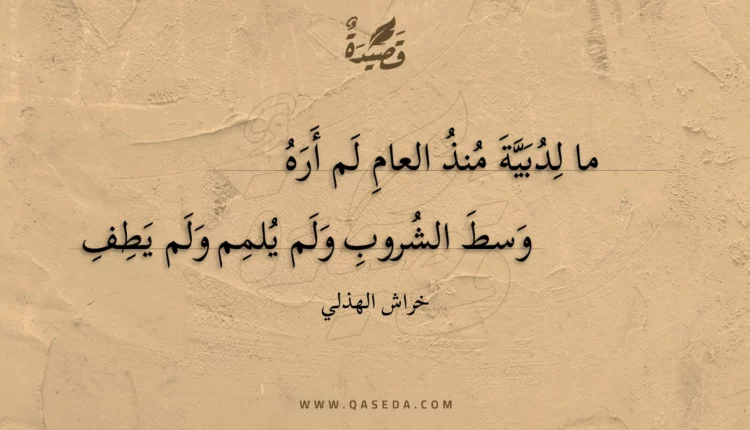 قَصِيدَةٌ
ما لِدُبَيَّةَ مُنذُ العامِ لَم أَرَهُ
وَسطَ الشُروبِ وَلَم يُلمِم وَلَم يَطِفِ
خراش الهذلي
WWW.QASEDA.COM